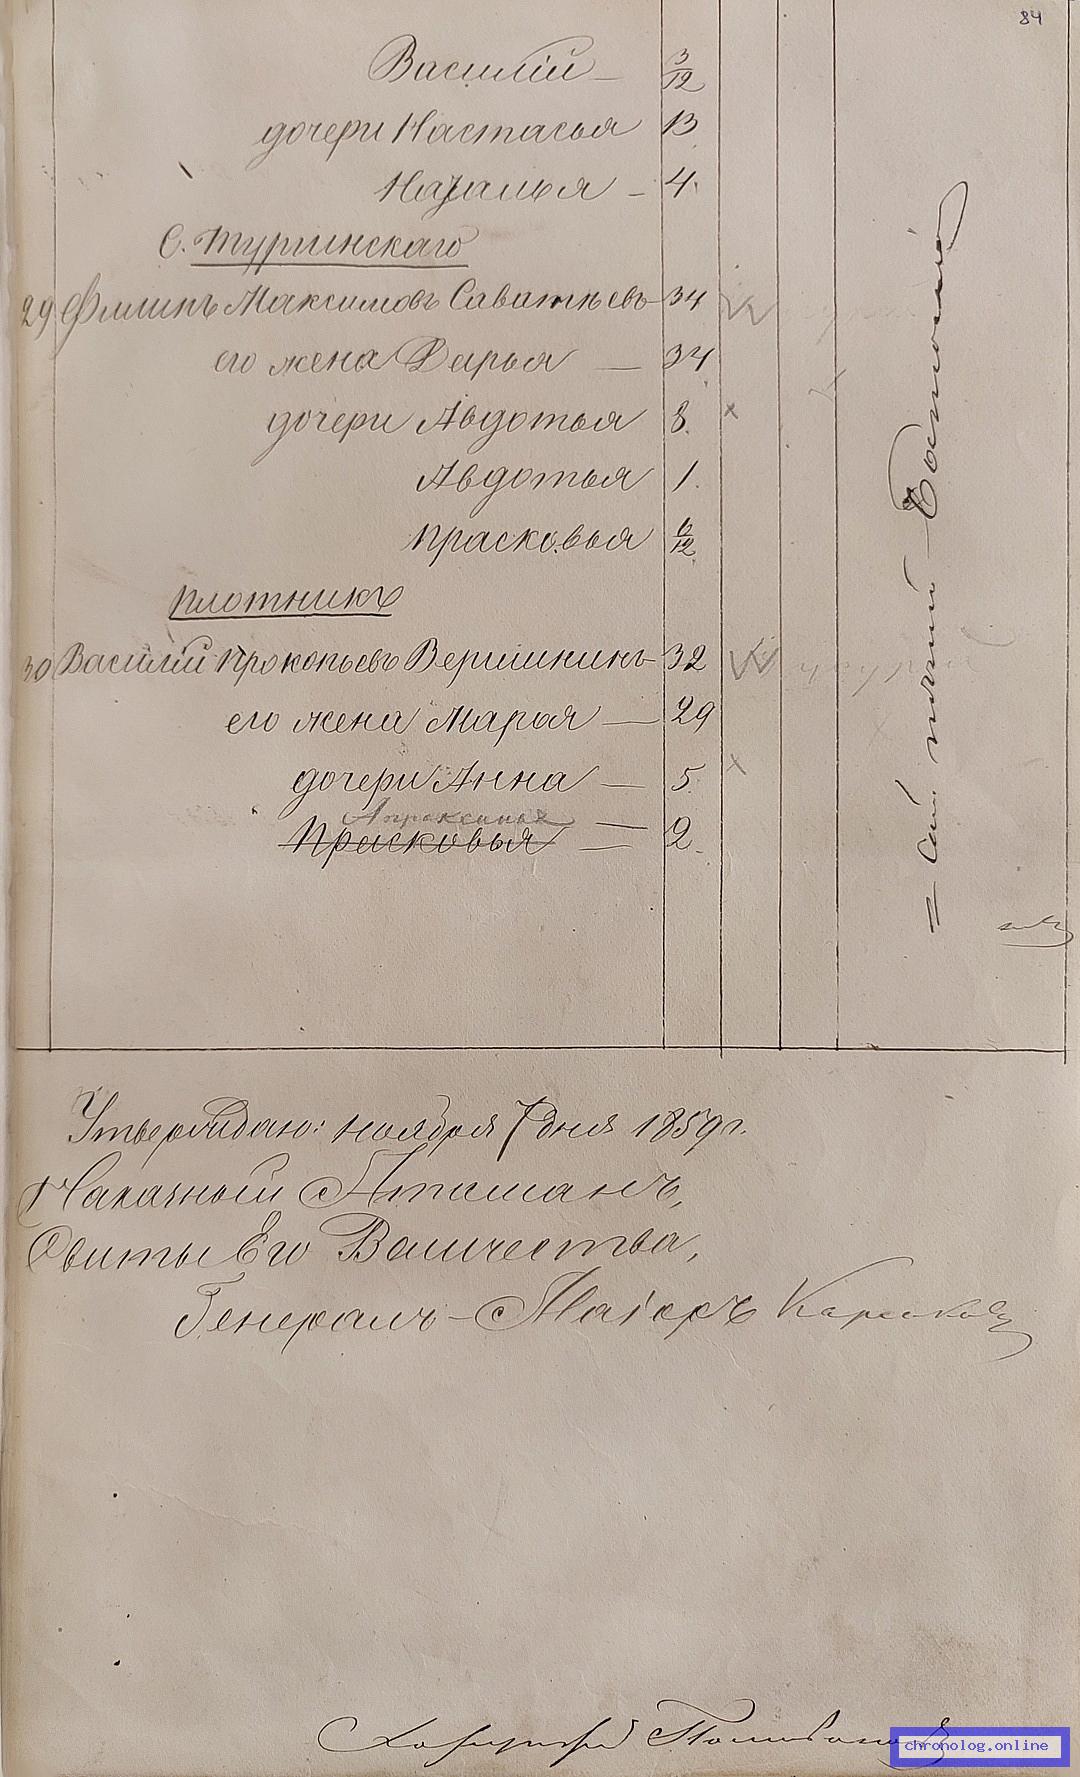 84
Василій — 3/12
дочери Настасья 13
Наталья — 4.
С. Туринскаго
29 Филипъ Максимовъ Саватѣевъ 34
его жена Дарья — 34
дочери Авдотья 8.
Авдотья 1.
Прасковья 6/12
Плотникъ
30 Василій Прокопьевъ Вершининъ 32
его жена Марья — 29
дочери Анна — 5.
Апраксинья
Прасковья — 2.
Утверждаю: ноября 7 дня 1859 г.
Наказный Атаманъ,
Свиты Его Величества,
Генералъ-Маіоръ
chronolog.online